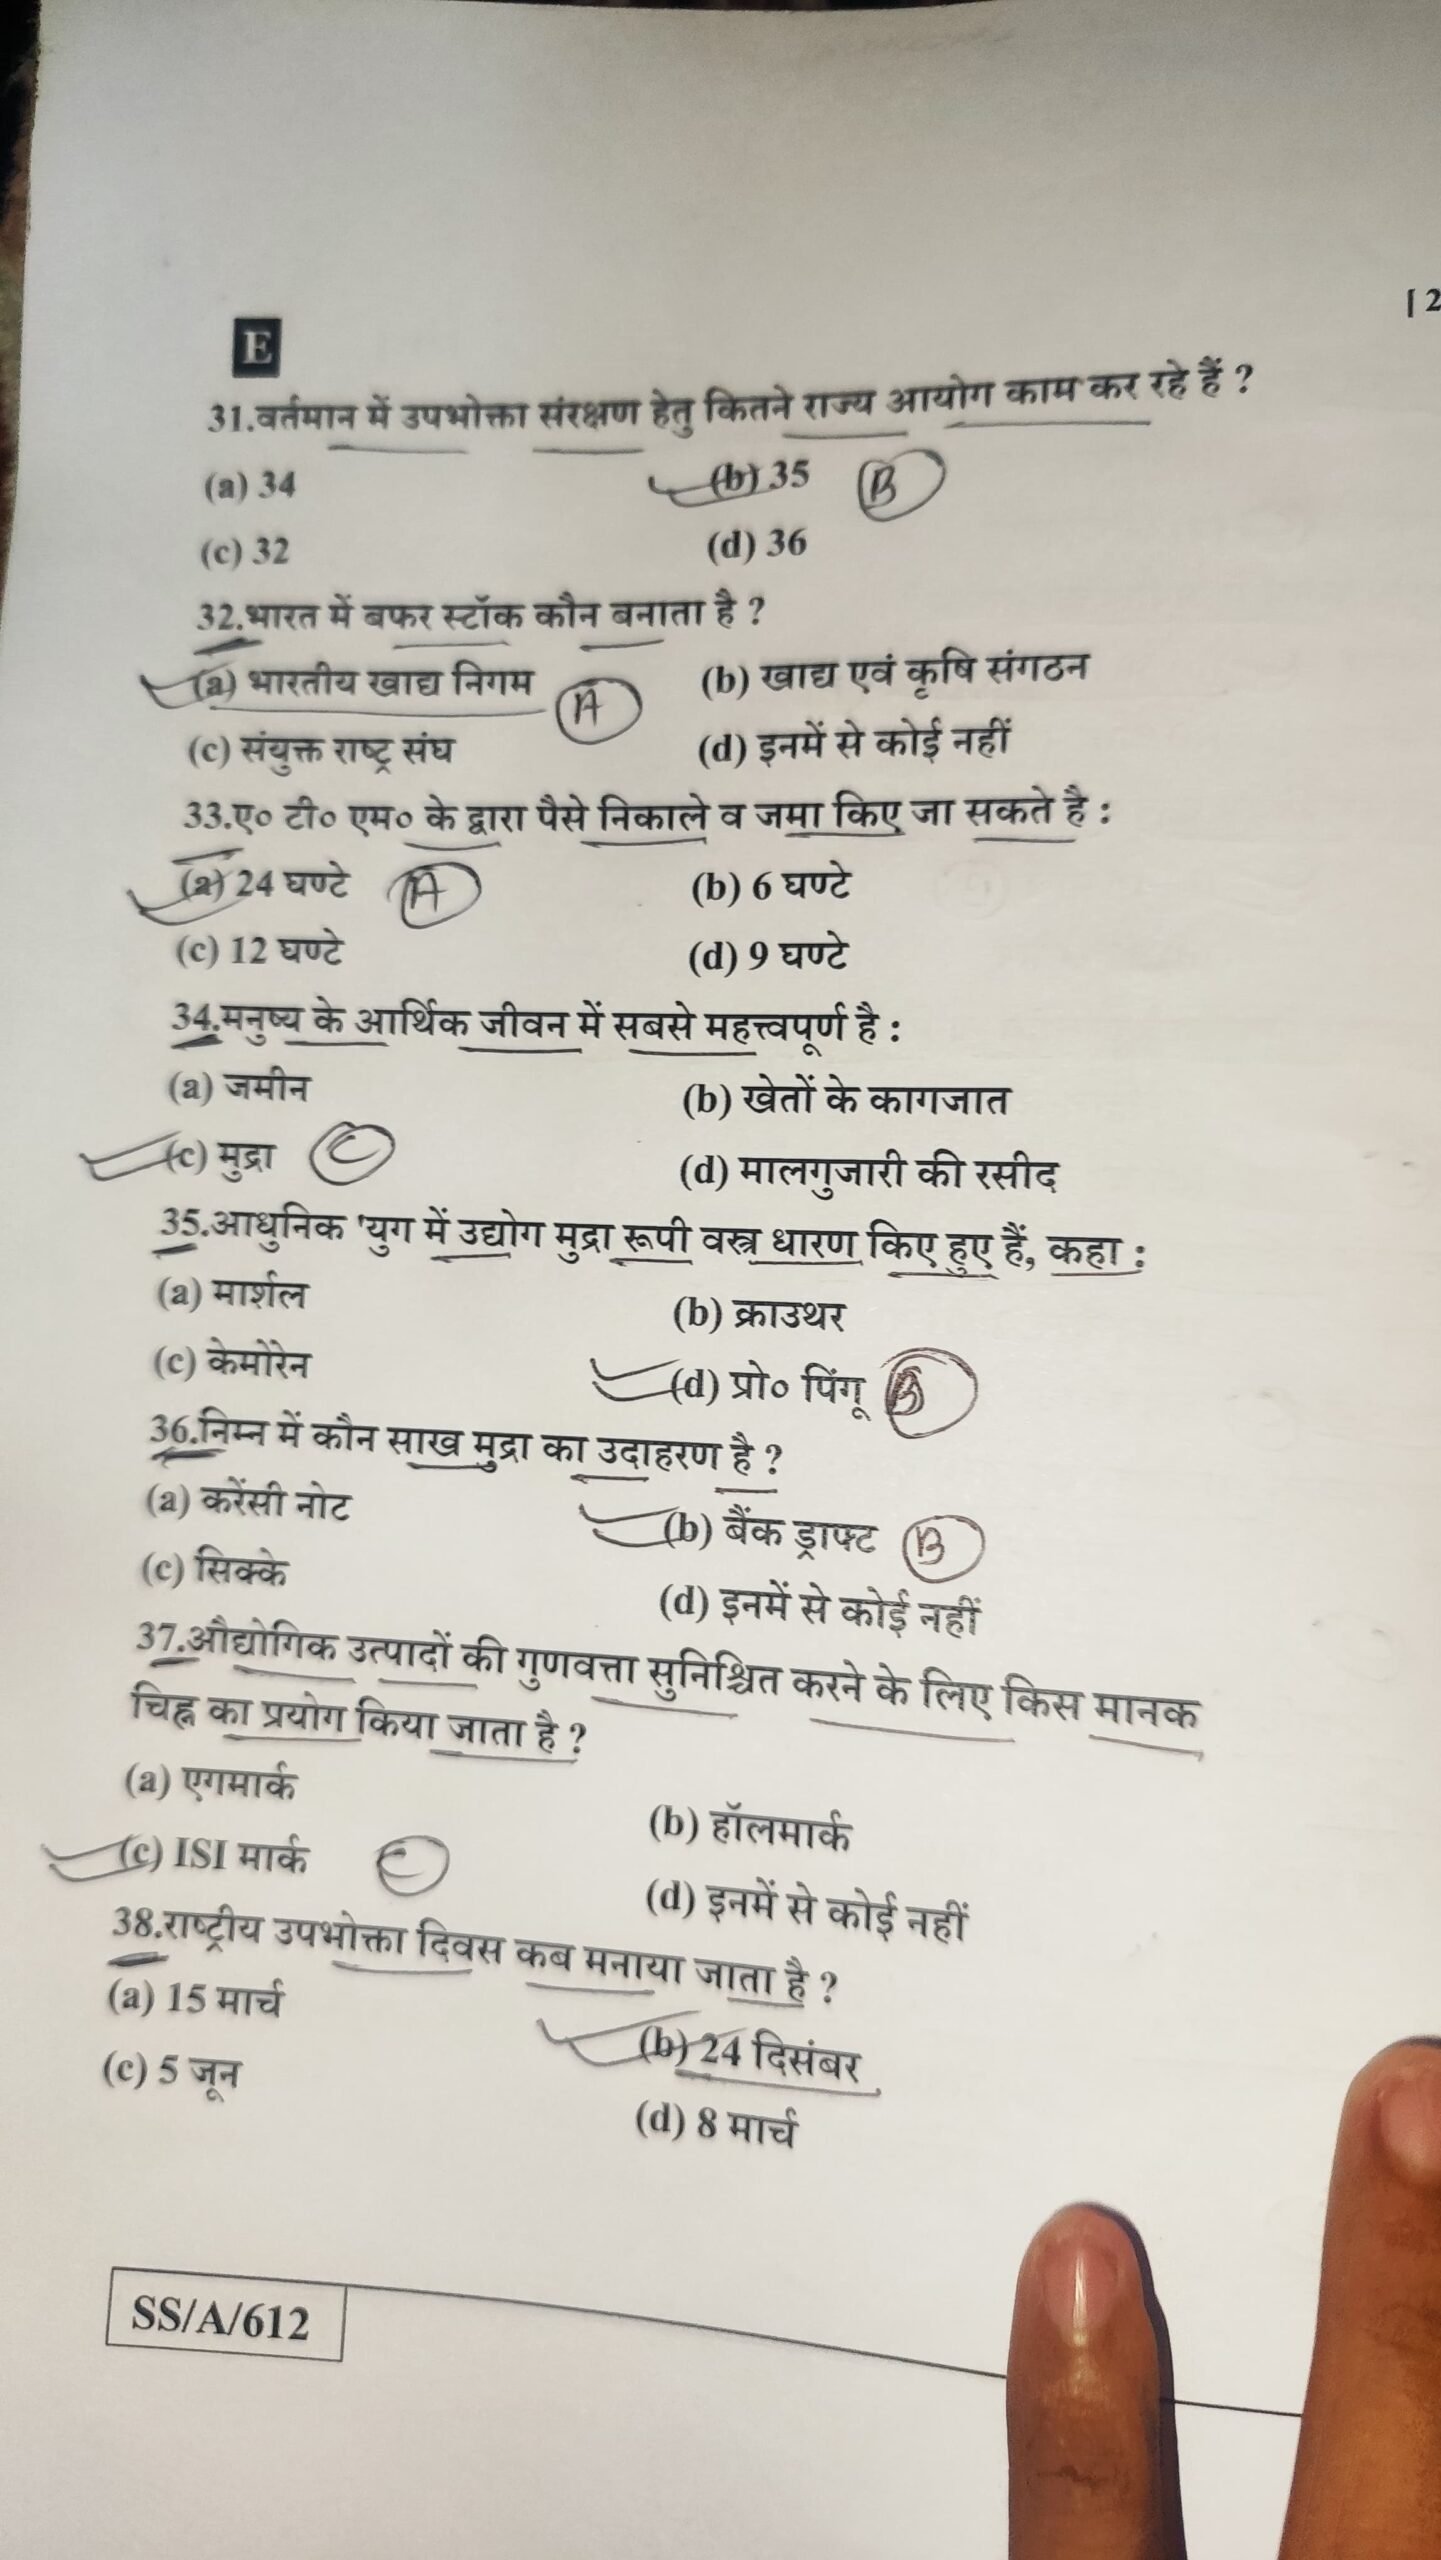 [ 2
E
31.वर्तमान में उपभोक्ता संरक्षण हेतु कितने राज्य आयोग काम कर रहे हैं ?
(a) 34 (b) 35 B
(c) 32 (d) 36
32.भारत में बफर स्टॉक कौन बनाता है ?
(a) भारतीय खाद्य निगम A (b) खाद्य एवं कृषि संगठन
(c) संयुक्त राष्ट्र संघ (d) इनमें से कोई नहीं
33.ए० टी० एम० के द्वारा पैसे निकाले व जमा किए जा सकते है :
(a) 24 घण्टे A (b) 6 घण्टे
(c) 12 घण्टे (d) 9 घण्टे
34.मनुष्य के आर्थिक जीवन में सबसे महत्त्वपूर्ण है :
(a) जमीन (b) खेतों के कागजात
(c) मुद्रा C (d) मालगुजारी की रसीद
35.आधुनिक 'युग में उद्योग मुद्रा रूपी वस्त्र धारण किए हुए हैं, कहा :
(a) मार्शल (b) क्राउथर
(c) केमोरेन (d) प्रो० पिंगू
36.निम्न में कौन साख मुद्रा का उदाहरण है ?
(a) करेंसी नोट (b) बैंक ड्राफ्ट B
(c) सिक्के (d) इनमें से कोई नहीं
37.औद्योगिक उत्पादों की गुणवत्ता सुनिश्चित करने के लिए किस मानक
चिह्न का प्रयोग किया जाता है ?
(a) एगमार्क (b) हॉलमार्क
(c) ISI मार्क C (d) इनमें से कोई नहीं
38.राष्ट्रीय उपभोक्ता दिवस कब मनाया जाता है ?
(a) 15 मार्च (b) 24 दिसंबर
(c) 5 जून (d) 8 मार्च
SS/A/612